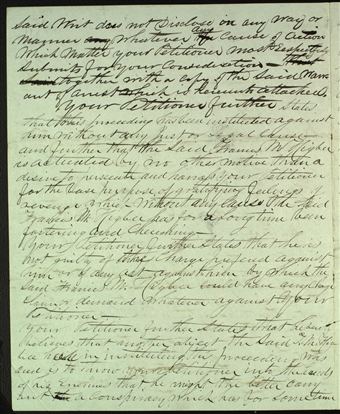 Said Writ does not Disclose in any way or
Manner any Whatever any Cause of Action
Which Matter your Petitioner most Respectfully
Submits for your Consideration
together with a copy of the Said Warr
ant of arrest which is herewith attached
Your Petitioner further States
that this proceeding has been instituted against
him without any just or legal Cause
and further that the Said Francis M.
is actuated by no other motive than a
desire to persecute and harrass your Petitioner
for the base purpose of gratifying feelings of
revenge which without any cause the Said
Francis M. has for a long time been
fostering and cherishing
Your Petitioner further States that he is
not guilty of the Charge prefered against
him or of any act against him by which the
Said Francis M. could have any legal
Claim or demand whatever against your
Petitioner
Your Petitioner further States that he
believes that another object the Said
has in instituting the proceeding
is to your Petitioner into the hands
of his Enemies that he might the better carry
out a conspiracy which has for some time